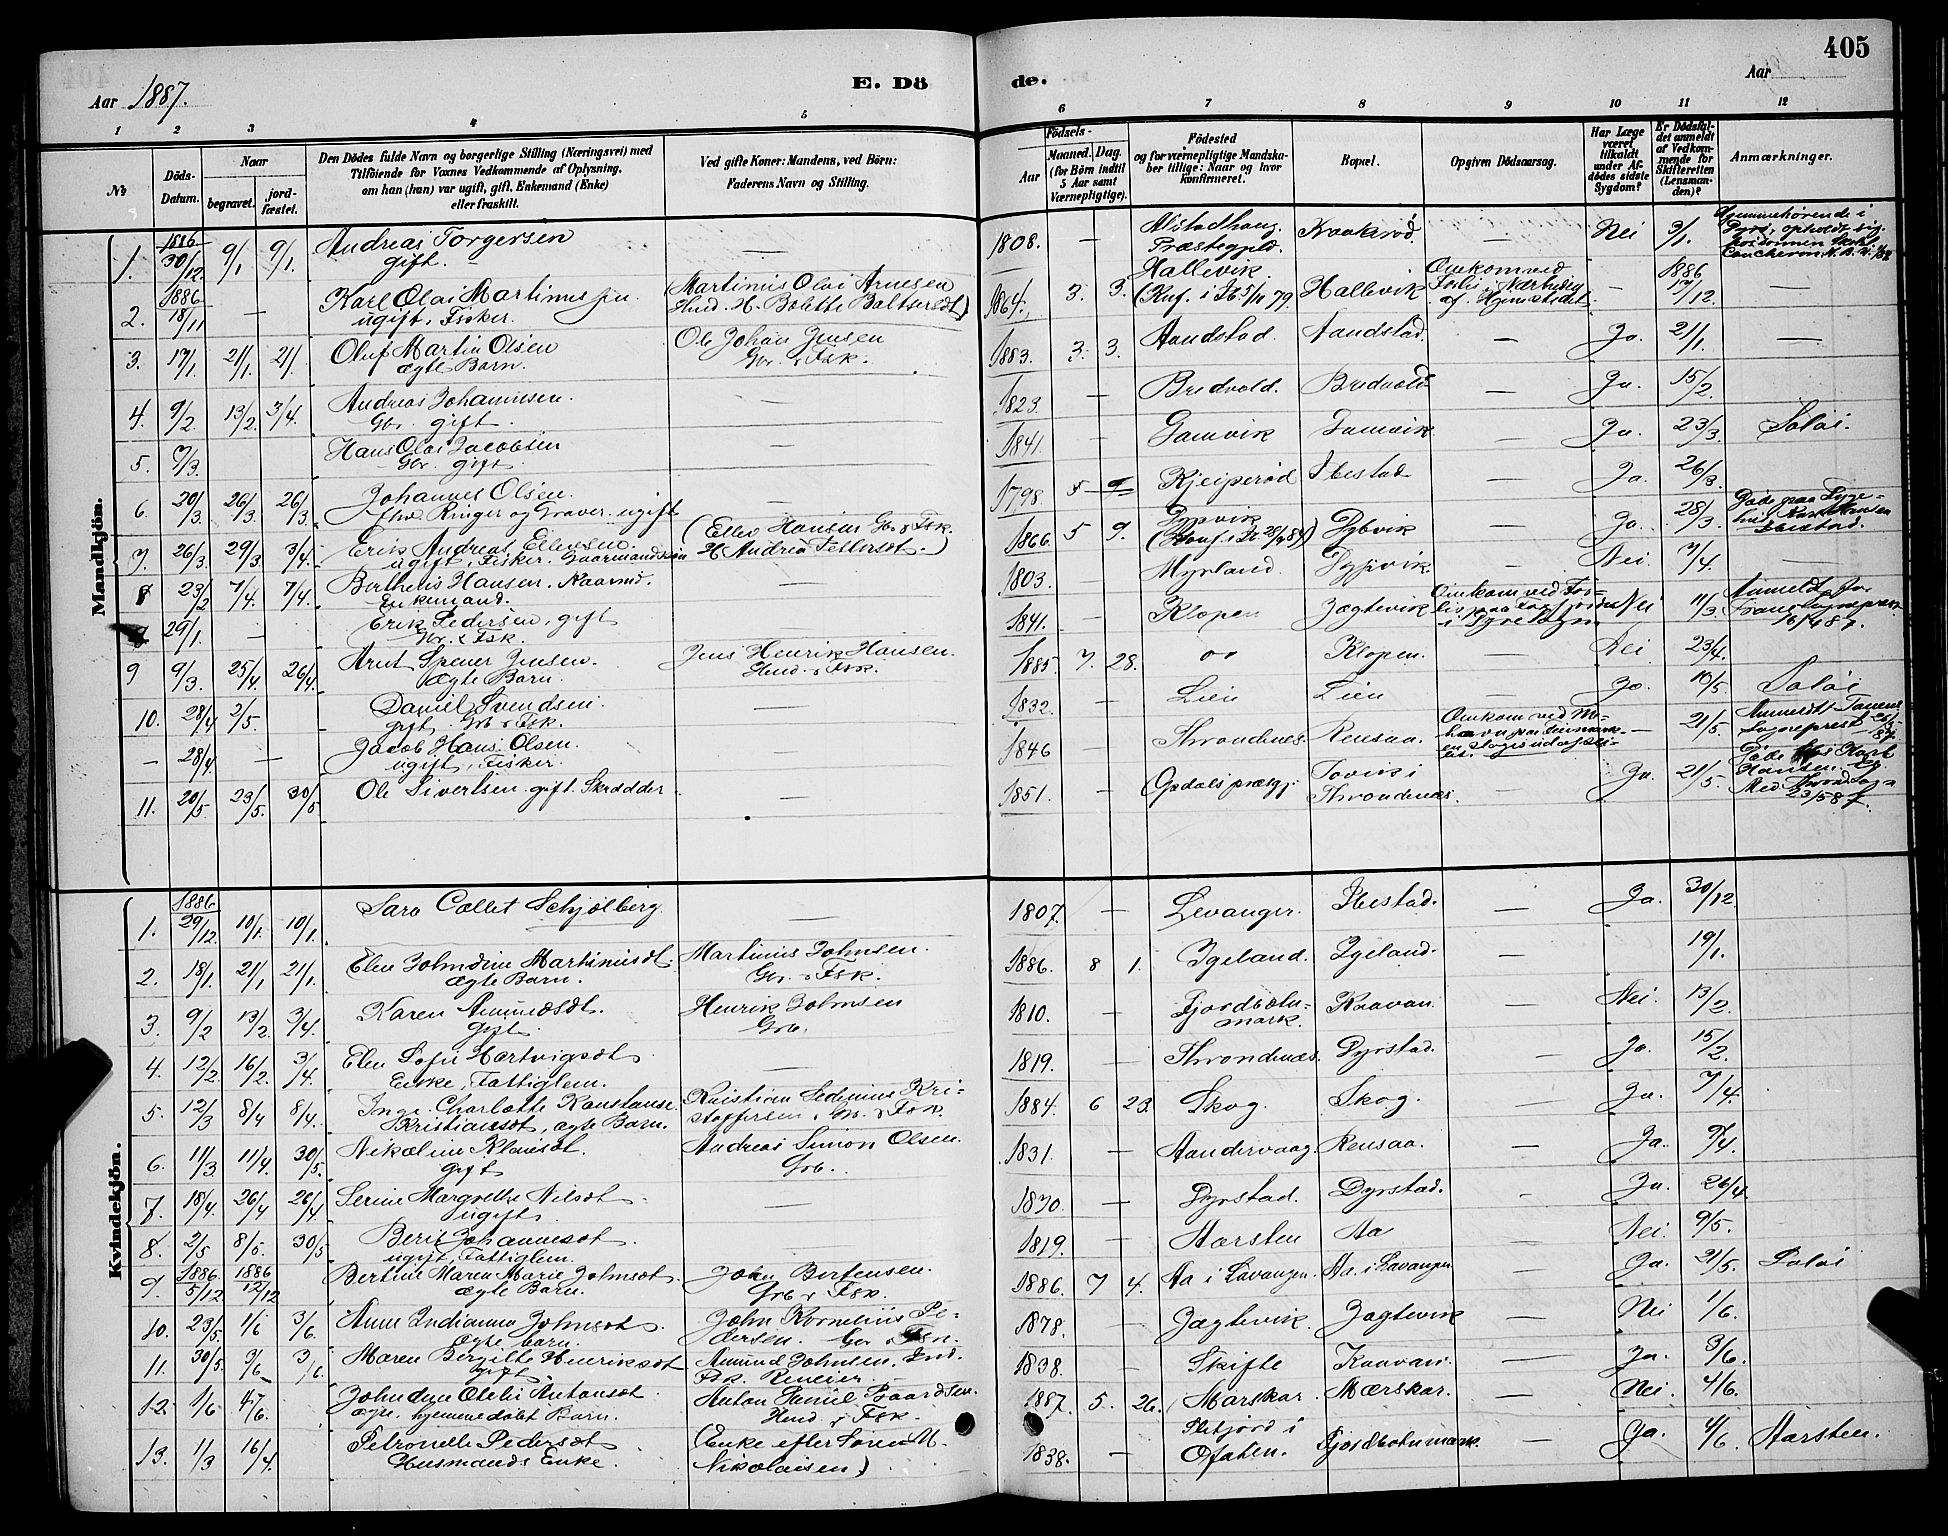 405
Aar 1887.
E. Dö
de.
Aar
1 2 3 4 5 6 7 8 9 10 11 12
№
Döds-
Datum.
Naar
begravet.
jord-
fæstet.
Den Dödes fulde Navn og borgerlige Stilling (Næringsvei) med
Tilföiende for Voxnes Vedkommende af Oplysning,
om han (hun) var ugift, gift, Enkemand (Enke)
eller fraskilt.
Ved gifte Koner: Mandens, ved Börn:
Faderens Navn og Stilling.
Födsels-
Aar
Maaned. Dag.
(for Börn indtil
5 Aar samt
Værnepligtige).
Födested
og for værnepligtige Mandska-
ber tillige: Naar og hvor
konfirmeret.
Bopæl.
Opgiven Dödsaarsag.
Har Læge
været
tilkaldt
under Af-
dödes sidste
Sygdom?
Er Dödsfal-
det anmeldt
af Vedkom-
mende for
Skifteretten
(Lensman-
den)?
Anmærkninger.
Mandkjön.
1. 1886 30/12 9/1 9/1. Andreas Torgersen — 1808. — Alstadhaug Kraakrød — Nei 3/1. Hjemmehørende i
gift. Præstegjeld.
2. 1886 18/11 — Karl Olai Martinus jen Martinus Olai Arnesen 1864. 3. 3. Hallevik. Hallevik Omkom ved — 1886 17/12.
ugift, Fisker. (Knf. i Ib 5/11 79) af Hjemstedet
3. 17/1. 21/1. 21/1. Oluf Martin Olsen Ole Johan Jensen 1883. 3. 3. Aandstad. Aandstad. — Ja. 21/1. —
ægte Barn. Gbr. & Fsk.
4. 9/2. 13/2. 3/4. Andreas Johannesen. — 1823. — Bredvold. Bredvold — Ja. 15/2.
Gbr. gift.
5. 7/3. Hans Olai Jacobsen — 1841. — Gamvik Gamvik — Ja. 23/3. Saløi.
Gbr. gift.
6. 20/3. 26/3. 26/3. Johannes Olsen. — 1798. 5 9 Kjeiperød Ibestad — Ja. 26/3.
fhv. Ringer og Graver. ugift
7. 26/3. 29/3. 3/4. Erik Andreas Ellevsen. (Ellev Hansen Gbr. & Fsk. 1866. 5 9. Dypvik Dybvik — Ja. 28/3.
ugift, Fisker. Gaarmandssøn H. Andrea Pettersdt.)
8 23/2 7/4. 7/4. Berthens Hansen. Naarmd. — 1803. — Myrland. Dypvik. — Nei. 7/4.
Enkemand.
29/1. — Erik Pedersen, gift — 1841. — Klopen Jægtevik Omkom ved For- Nei 11/3. Anmeldt for
Gbr. & Fsk. 16/4 87.
9 9/3. 25/4. 26/4. Arnt Spener Jensen. Jens Henrik Hansen. 1885. 7. 28. Klopen. — Nei. 23/4.
ægte Barn. Hmd. & Fsk.
10. 28/4 2/5. Daniel Svendsen. — 1832. — Lien Lien — Ja. 10/5. Saløi
gift, Gbr & Fsk.
— 28/4. — Jacob Hans Olsen. — 1846 — Throndnes. Rensaa. Omkom ved — 21/5. Anmeldt
ugift, Fisker. Sogneprest
11. 20/5 23/5. 30/5 Ole Sivertsen. gift. Skrædder — 1851. — Opdals præstgj. Tovik i — Ja. 21/5.
Throndenæs. 23/5 87.
Kvindekjön.
1. 1886 29/12 10/1. 10/1. Sara Collet Schjølberg. — 1807. — Levanger. Ibestad. — Ja. 30/12.
2. 18/1. 21/1 21/1. Elen Johndine Martinusdt. Martinus Johnsen. 1886. 8 1. Igeland. Igeland. — 19/1.
ægte Barn. Gbr. & Fsk.
3. 9/2 13/2. 3/4. Karen Amundsdt. Henrik Johnsen 1810. — Fjordbotn- Kaavan. — Nei. 13/2.
gift. Grb. mark.
4. 12/2. 16/2. 3/4. Elen Sofie Hartvigsdt. — 1819. — Throndnæs. Dyrstad. — Ja. 15/2.
Enke, Fattiglem.
5. 12/3 8/4 8/4. Inge. Charlotte Konstanse. Kristian Sedenius Kri- 1884. 6 23. Skog. Skog. — Ja. 7/4.
Kristiansdt, ægte Barn. stoffersen, Gbr. & Fsk.
6. 11/3. 11/4. 30/5. Nikoline Klausdt. Andreas Simon Olsen. 1831. — Aandervaag. Rensaa. — Ja. 9/4.
gift Grb.
7. 18/4. 26/4 26/4. Serine Margrethe Nilsdt. — 1830. — Dyrstad. Dyrstad. — Ja. 26/4
ugift.
8. 2/5 8/5. 30/5 Berit Johannesdt. 1819. — Aarsten Aa — Nei. 9/5.
ugift, Fattiglem.
9. 1886. 5/12 1886 12/12 Bertine Maren Marie Johnsdt. John Bertensen. 1886. 7 4. Aa i Lavangen. Aa i Lavangen — Ja. 21/5. Saløi
ægte Barn. Grb & Fsk.
10. 23/5. 1/6 3/6. Anne Indianna Johnsdt. John Kornelius Pe- 1878. Jægtevik. Jægtevik — Nei 1/6.
ægte barn. dersen. Gbr & Fsk.
11. 30/5. 3/6 3/6. Maren Bergitte Henriksdt Amund Johnsen, Ind. 1838. — Skifte Kaavan. — Ja. 3/6.
gift. Fsk.
12. 1/6 4/6. Johndine Otelie Antonsdt. Anton Daniel Baardsen. 1887. 5. 26. Marskar. Mærskar. — Nei. 4/6.
ægte, hjemmedøbt Barn. Hmd & Fsk.
13. 1/3 16/4. Petronelle Pedersdt (Enke efter Søren M. 1838. — i Fjordbotnmark. — Ja. 4/6. Aarsten.
Husmands Enke. Nikolaisen) Ofoten.